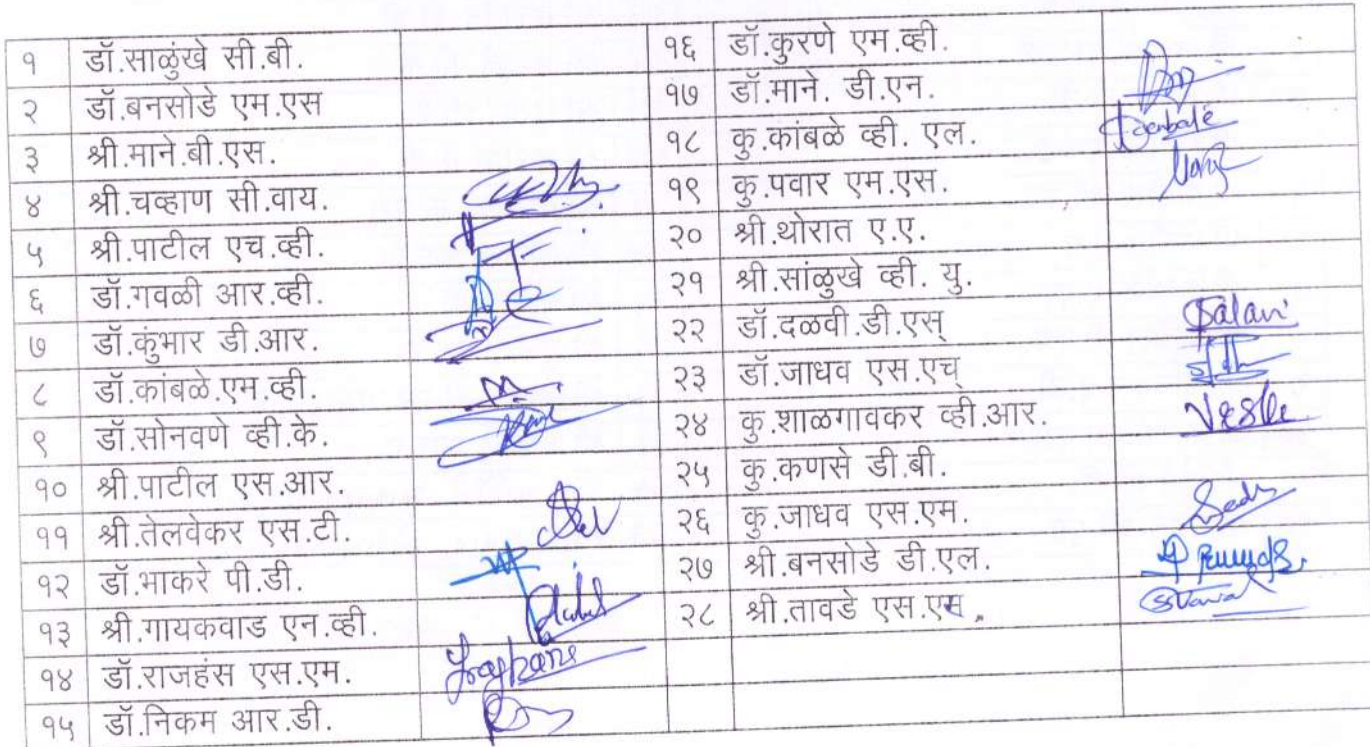 १ डॉ.साळुंखे सी.बी. १६ डॉ.कुरणे एम.व्ही.
२ डॉ.बनसोडे एम.एस १७ डॉ.माने. डी.एन.
३ श्री.माने.बी.एस. १८ कु.कांबळे व्ही. एल.
४ श्री.चव्हाण सी.वाय. १९ कु.पवार एम.एस.
५ श्री.पाटील एच.व्ही. २० श्री.थोरात ए.ए.
६ डॉ.गवळी आर.व्ही. २१ श्री.सांळुखे व्ही. यु.
७ डॉ.कुंभार डी.आर. २२ डॉ.दळवी.डी.एस्
८ डॉ.कांबळे.एम.व्ही. २३ डॉ.जाधव एस.एच्
९ डॉ.सोनवणे व्ही.के. २४ कु.शाळगावकर व्ही.आर.
१० श्री.पाटील एस.आर. २५ कु.कणसे डी.बी.
११ श्री.तेलवेकर एस.टी. २६ कु.जाधव एस.एम.
१२ डॉ.भाकरे पी.डी. २७ श्री.बनसोडे डी.एल.
१३ श्री.गायकवाड एन.व्ही. २८ श्री.तावडे एस.एस.
१४ डॉ.राजहंस एस.एम.
१५ डॉ.निकम आर.डी.